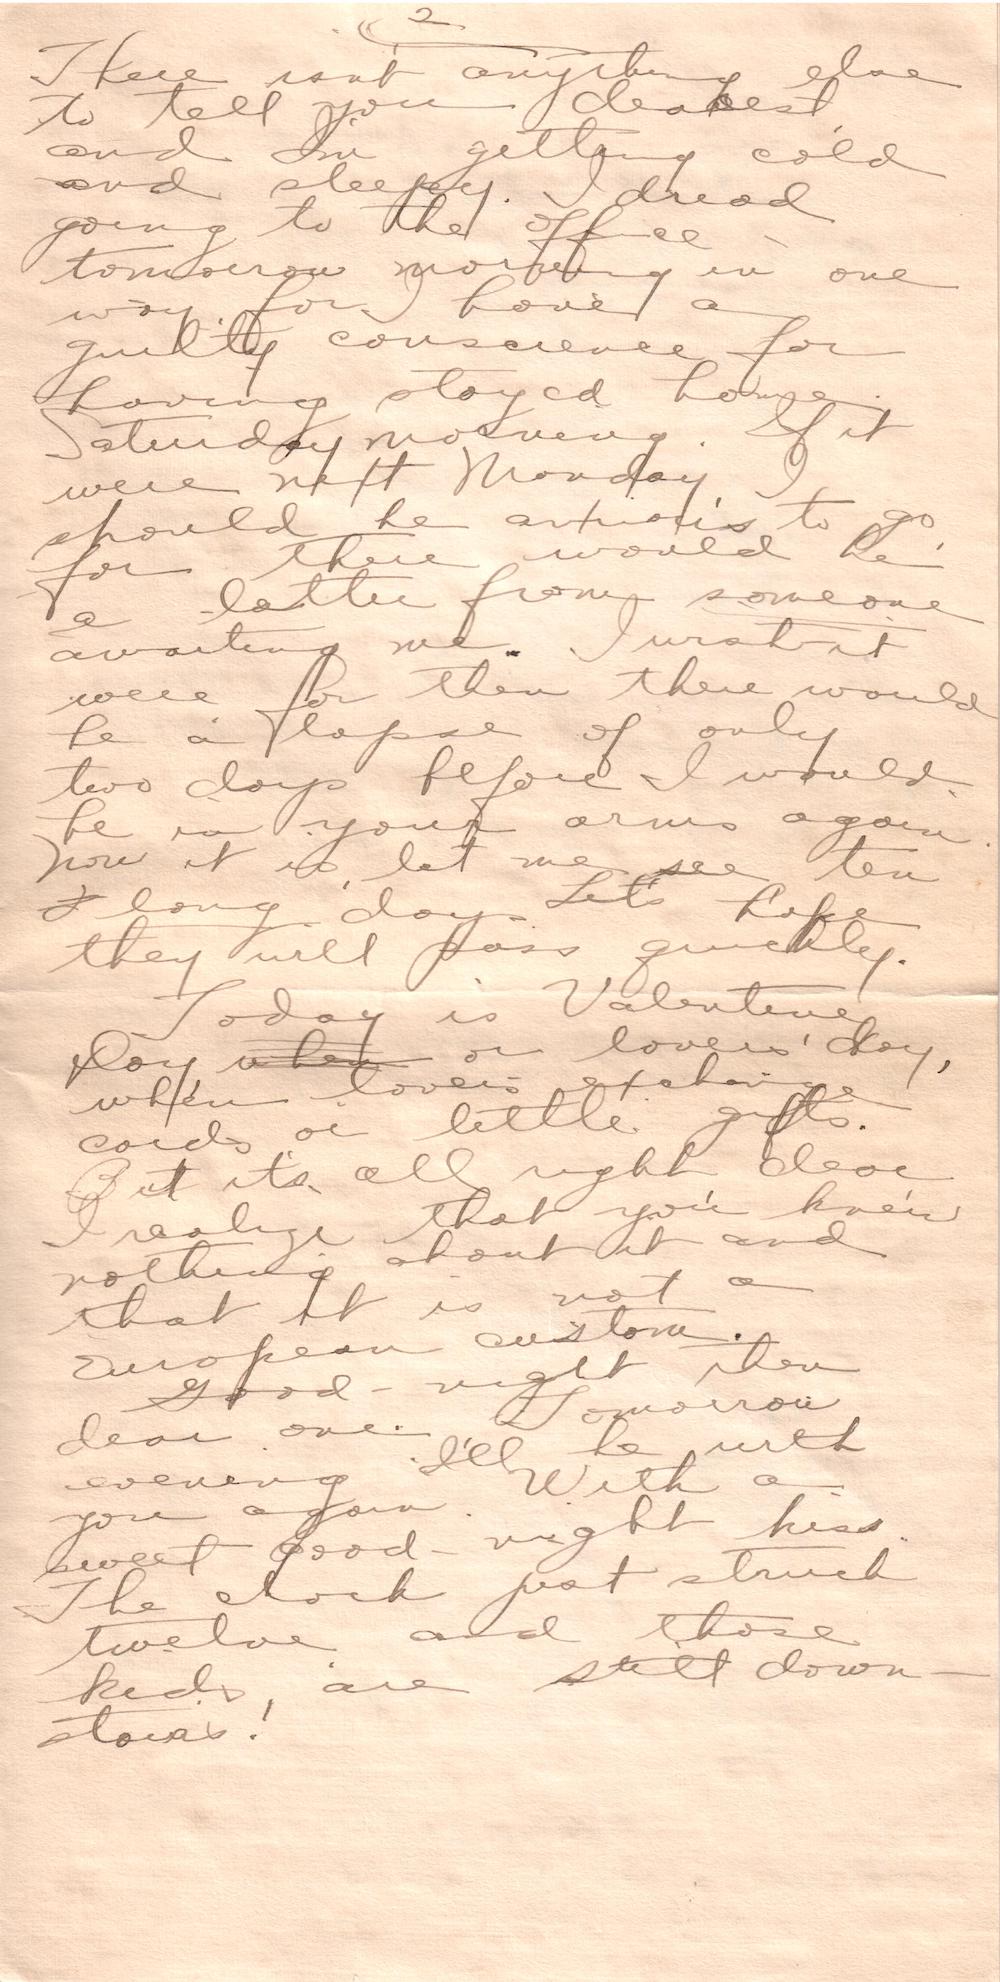 2
There isn't anything else
to tell you dearest
and I'm getting cold
and sleepy. I dread
going to the office
tomorrow morning in one
way, for I have a
guilty conscience for
having stayed home
Saturday morning. If it
were next Monday, I
should be anxious to go,
for there would be
a letter from someone
awaiting me. I wish it
were for then there would
be a lapse of only
two days before I would
be in your arms again.
Now it is, let me see ten
long days. Let's hope
they will pass quickly.
Today is Valentine
Day when or lovers' day,
when lovers exchange
cards or little gifts.
But it's all right dear
I realize that you knew
nothing about it and
that it is not a
European custom.
Good-night then
dear one. Tomorrow
evening I'll be with
you again. With a
sweet good-night kiss.
The clock just struck
twelve and those
kids are still down-
stairs!